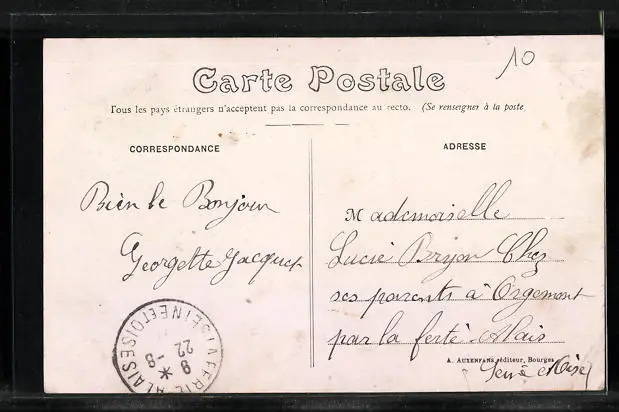 10
Carte Postale
Tous les pays étrangers n'acceptent pas la correspondance au recto. (Se renseigner à la poste
CORRESPONDANCE
ADRESSE
Bien le Bonjour
Georgette Jacquet
Mademoiselle
Lucie Brijon Chez
ses parents à Orgemont
par la ferté-Alais
A. AUXENFANS éditeur, Bourges
Seine et Oise
LA FERTE ALAIS SEINE ET OISE
8 -8
22